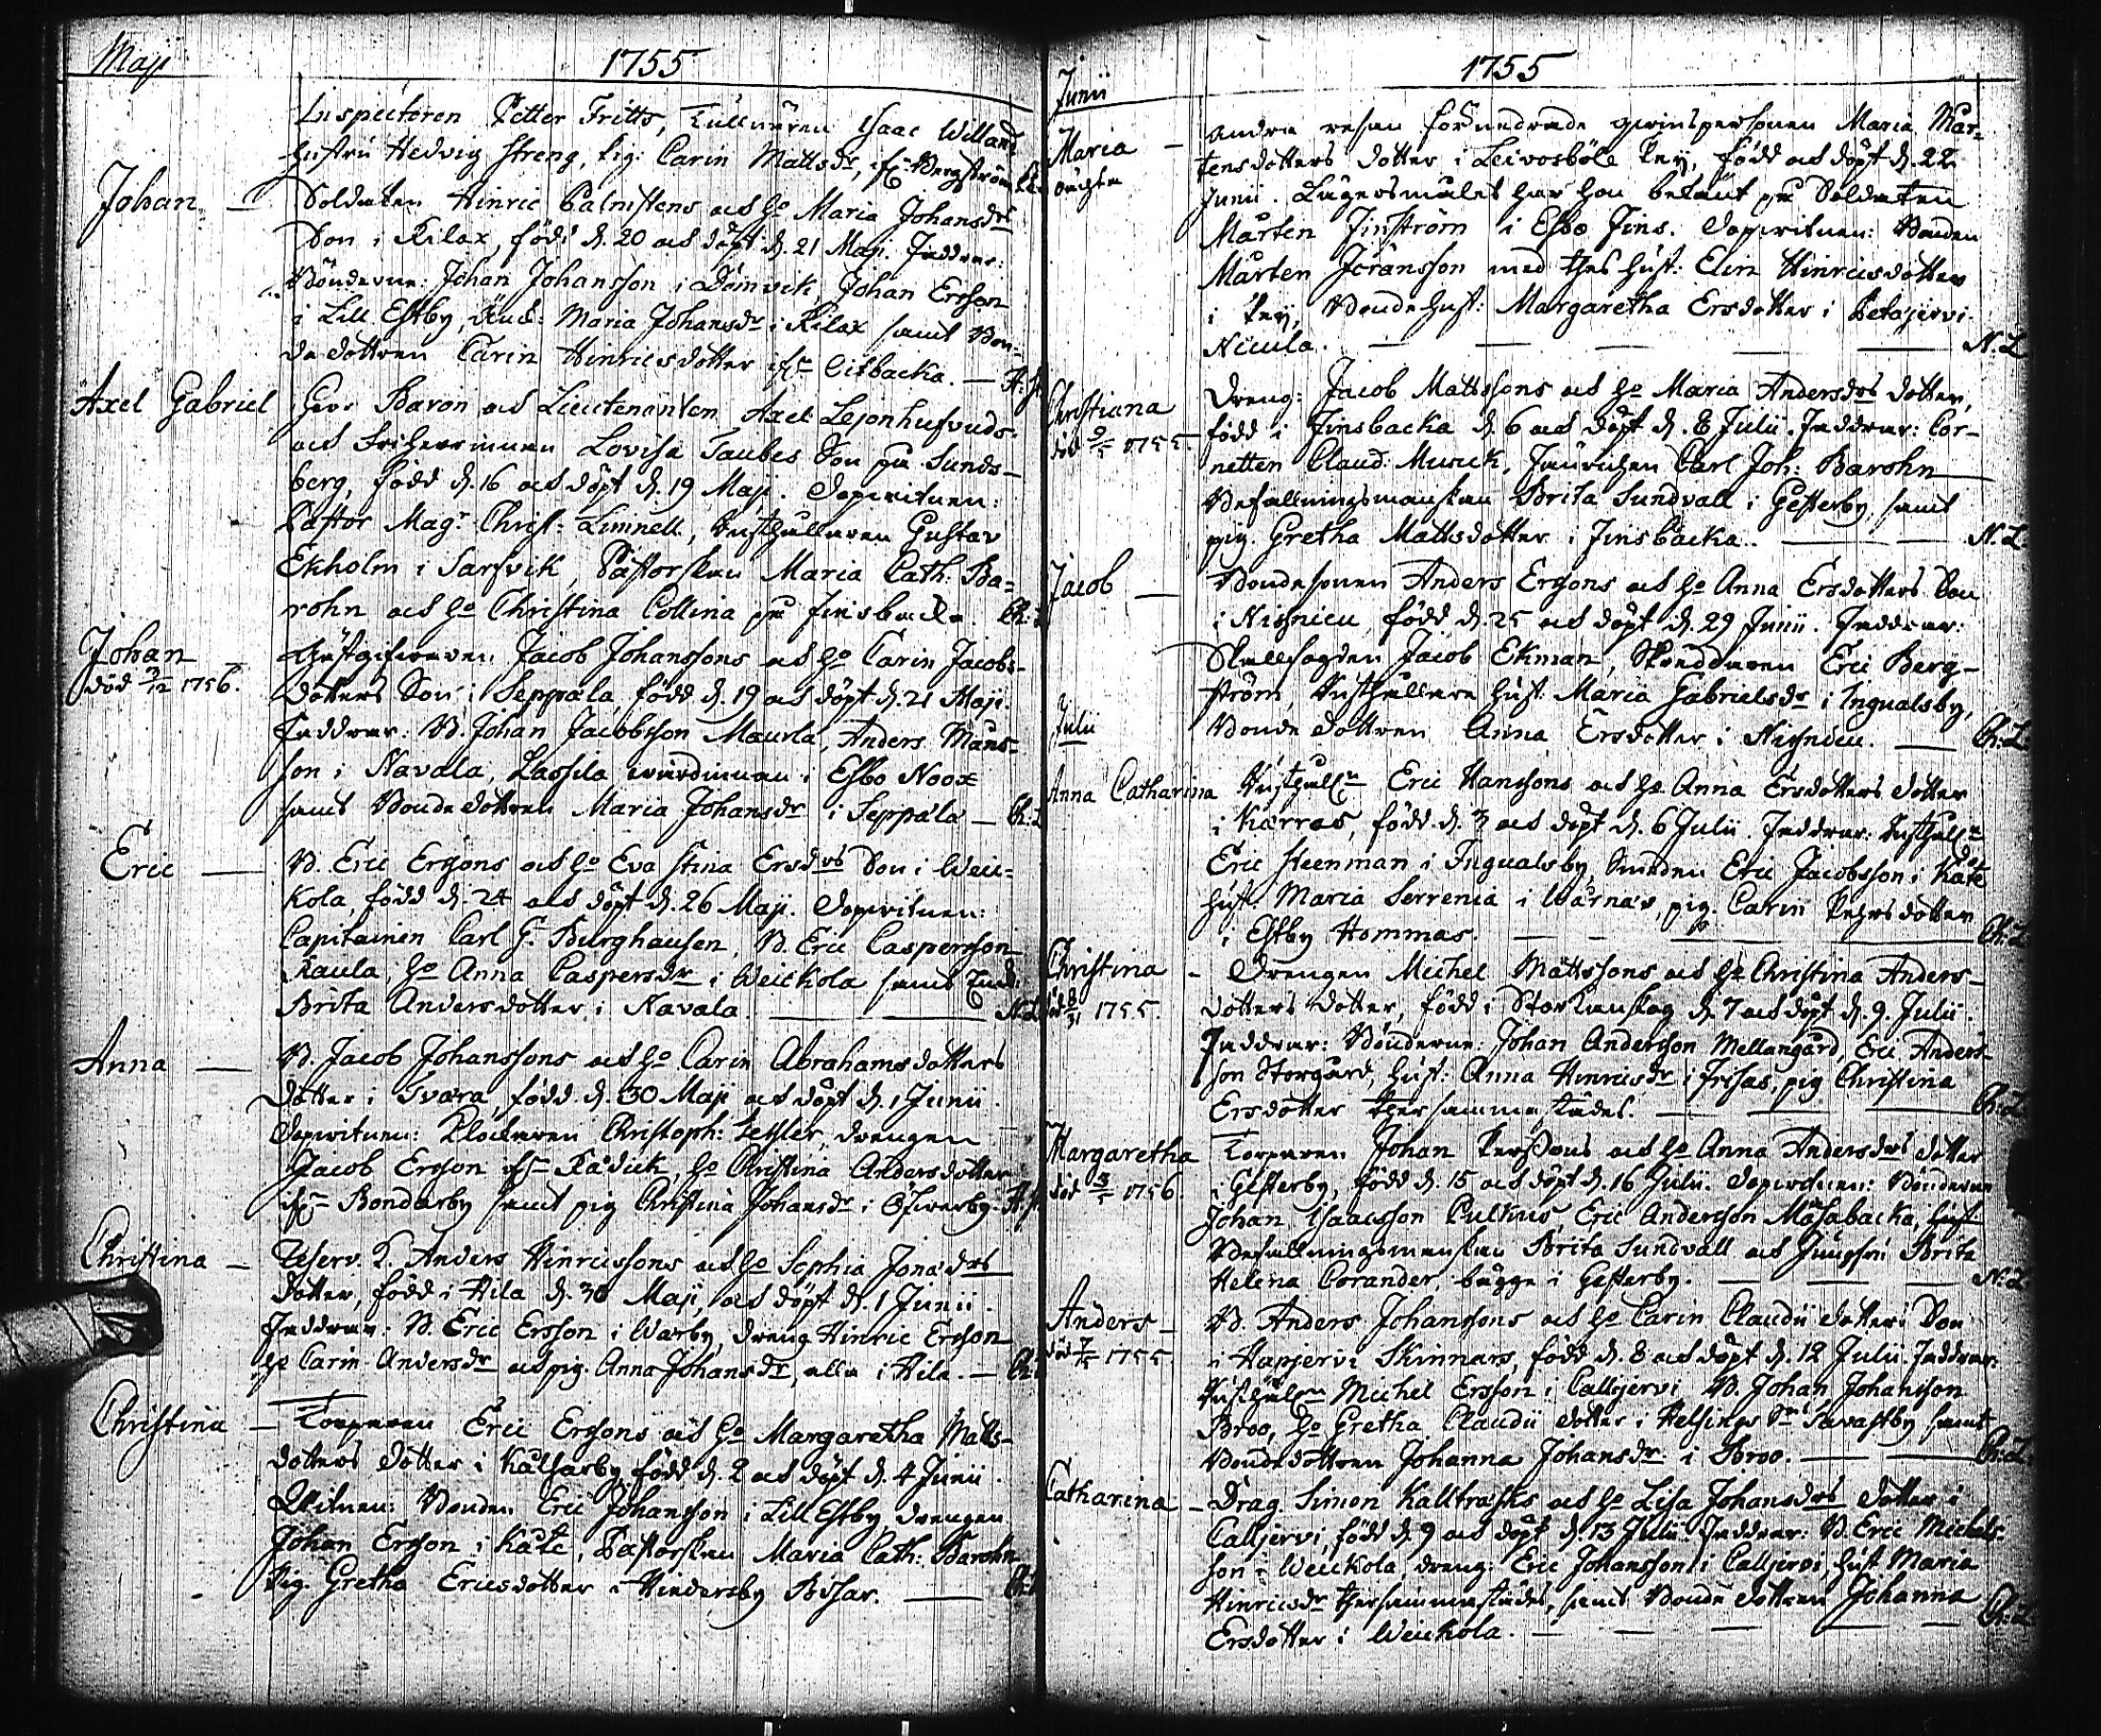 Maji 1755
Inspectoren Petter Fritts, Isaac Willand
hustru Hedvig Streng, pig: Carin Mattsdr, ifr Bergström
Johan — Soldaten Hinric Palmstens och ho Maria Johansdrs
Son i Kilax, född d. 20 och döpt d. 21 Maji. Faddrar:
Bönderne: Johan Johansson i Dämvik, Johan Ersson
i Lill Estby, Änck: Maria Johansdr i Kilax samt Bon-
dedottren Carin Hinricsdotter ifr Citbacka. —
Axel Gabriel Herr Baron och Lieutenanten Axel Lejonhufvuds
och Friherrinnan Lovisa Taubes Son på Sunds-
berg, född d. 16 och döpt d. 19 Maji. Dopvitnen:
Pastor Magr Christ: Limnell, Rusthållaren Gustav
Ekholm i Sarfvik, Pastorskan Maria Cath: Ba-
rohn och ho Christina Collina på Finsbacka. Ch: L
Johan Gästgifvaren Jacob Johanssons och ho Carin Jacobs-
död 3/12 1756. dotters Son i Seppälä, född d. 19 och döpt d. 21 Maji.
Faddrar: B. Johan Jacobsson Maurla, Anders Måns-
son i Navala, Lassila värdinnan i Esbo Noox
samt Bondedottren Maria Johansdr i Seppälä — Ch: L
Eric — B. Eric Ersons och ho Eva Stina Ersdrs Son i Weic-
kola, född d. 24 och döpt d. 26 Maji. Dopvitnen:
Capitainen Carl G. Burghausen, B. Eric Caspersson
Kaula, ho Anna Caspersdr i Weickola samt
Brita Andersdotter i Navala. — N.L
Anna — B. Jacob Johanssons och ho Carin Abrahamsdotters
dotter i Svara, född d. 30 Maji och döpt d. 1 Junii.
Dopvitnen: Klockaren Christoph: Letzler, drengen
Jacob Erson ifr Rådick, ho Christina Andersdotter
ifr Bondarby samt pig Christina Johansdr i Öfverby.
Christina — Reserv. K. Anders Hinricssons och ho Sophia Jonædrs
dotter, född i Hila d. 30 Maji, och döpt d. 1 Junii.
Faddrar: B. Eric Ersson i Warby, dreng Hinric Erson
ho Carin Andersdr och pig. Anna Johansdr, alla i Hila. —
Christina — Torparen Eric Ersons och ho Margaretha Matts-
dotters dotter i Kalsarby, född d. 2 och döpt d. 4 Junii.
Witnen: Bonden Eric Johansson i Lill Estby, drengen
Johan Erson i Kåte, Pastorskan Maria Cath: Barohn
Pig. Gretha Ericsdotter i Hindersby Bisar. —
Junii 1755
Maria — andra resan förnedrade qvinspersonen Maria Mår-
oächta tensdotters dotter i Leivosböle by, född och döpt d. 22
Junii. Lägersmålet har hon bekänt på Soldaten
Mårten Finström i Esbo Fins. Dopvitnen: Bonden
Mårten Jöransson med thes hust: Elin Hinricsdotter
i by, Bonde hust: Margaretha Ersdotter i Petajervi
Nicula. — N.L
Christiana Dreng: Jacob Mattssons och ho Maria Andersdrs dotter,
död 9/5 1755. född i Finsbacka d. 6 och döpt d. 8 Julii. Faddrar: Cor-
netten Claud: Munck, Junckern Carl Joh: Barohn
Befallningsmanskan Brita Sundvall i Gesterby, samt
pig. Gretha Mattsdotter i Finsbacka. — N.L.
Jacob — Bondesonen Anders Ersons och ho Anna Ersdotters Son
i Nisnicu född d. 25 och döpt d. 29 Junii. Faddrar:
Skallfogden Jacob Ekman, Skräddaren Eric Berg-
ström, Rusthållare hust: Maria Gabrielsdr i Ingualsby,
Julii Bonde dottren Anna Ersdotter i Nisnicu. — Ch: L
Anna Catharina Rusthålln Eric Hanssons och ho Anna Ersdotters dotter
i Karras, född d. 3 och döpt d. 6 Julii. Faddrar: Rusthålln
Eric Steenman i Ingualsby, Smeden Eric Jacobsson i Kåte
hust: Maria Serrenia i Wårnäs, pig. Carin Persdotter
i Estby Hommas. — Ch: L
Christina — Drengen Michel Mattssons och ho Christina Anders-
död 8/31 1755. dotters dotter, född i Storkanskog d. 7 och döpt d. 9 Julii.
Faddrar: Bönderne: Johan Andersson Mellangård, Eric Anders-
son Storgård, hust: Anna Hinricsdr i Frisas, pig Christina
Ersdotter thersammastädes. — Ch: L
Margaretha Torparen Johan Perssons och ho Anna Andersdrs dotter
död 3/1 1756. i Gesterby, född d. 15 och döpt d. 16 Julii. Dopvitnen: Bönderne
Johan Isacsson Pulkus, Eric Andersson Måsabacka,
Befallningsmanskan Brita Sundvall och Jungfru Brita
Helena Corander, bägge i Gesterby. — N.L
Anders — B. Anders Johanssons och ho Carin Claudii dotters Son
död 7/5 1755. i Hapjervi Skinnars, född d. 8 och döpt d. 12 Julii. Faddrar:
Rusthålln Michel Ersson i Calljervi, B. Johan Johansson
Broo, ho Gretha Claudii dotter i Helsinge Sn Savastby samt
Bondedottren Johanna Johansdr i Broo. — Ch: L
Catharina — Drag. Simon Kalltrasks och ho Lisa Johansdrs dotter i
Calljervi, född d. 9 och döpt d. 13 Julii. Faddrar: B. Eric Michels-
son i Weickola, dreng: Eric Johansson i Calljervi, hust Maria
Hinricsdr thersammastädes, samt Bonde dottren Johanna
Ersdotter i Weickola. — Ch: L